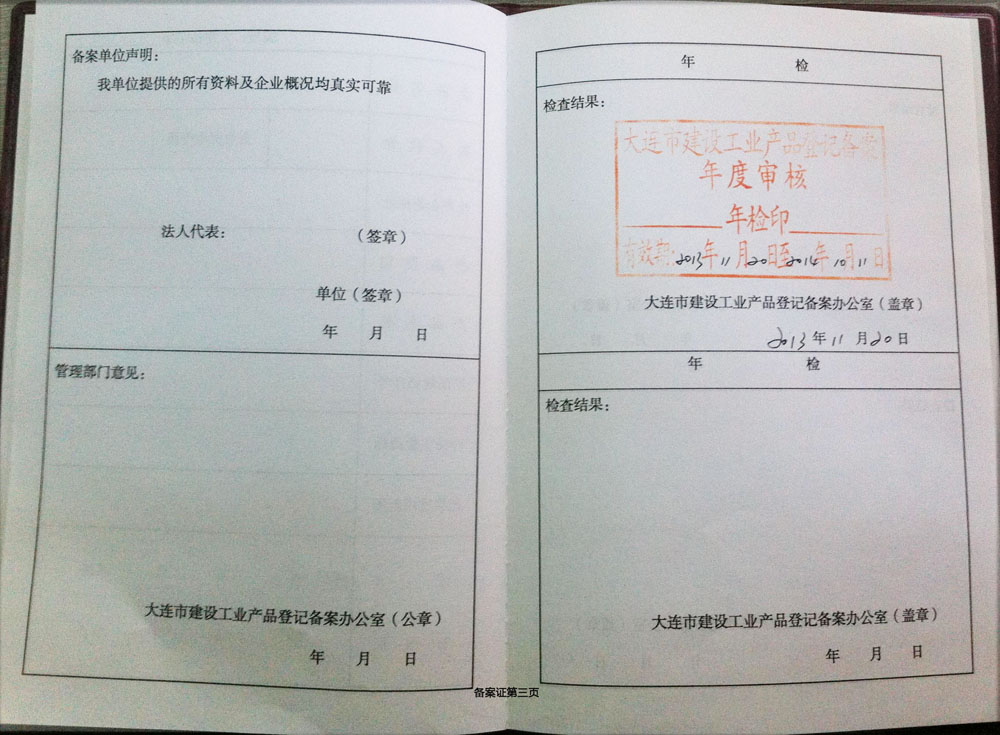 备案单位声明：
我单位提供的所有资料及企业概况均真实可靠
法人代表： （签章）
单位（签章）
年 月 日
管理部门意见：
大连市建设工业产品登记备案办公室（公章）
年 月 日
年 检
检查结果：
大连市建设工业产品登记备案
年度审核
年检印
有效期：2013年11月20日至2014年10月11日
大连市建设工业产品登记备案办公室（盖章）
2013年11月20日
年 检
检查结果：
大连市建设工业产品登记备案办公室（盖章）
年 月 日
备案证第三页